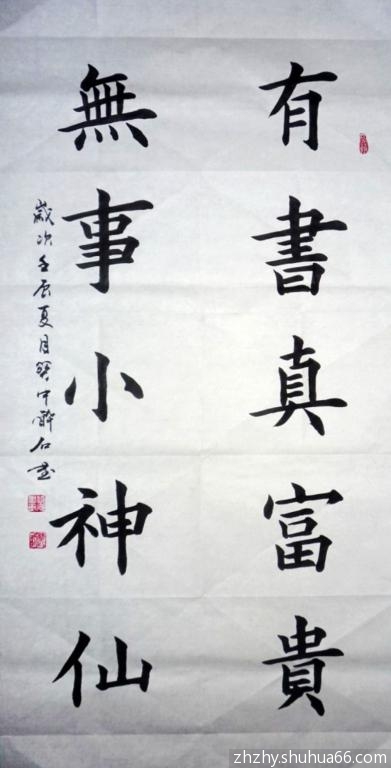 有書真富貴
無事小神仙
歲次壬辰夏月
zhzhy.shuhua66.com